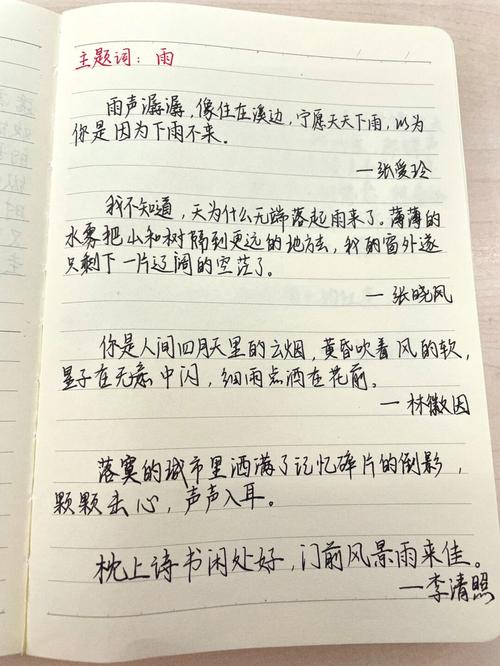 主题词：雨
雨声潺潺，像住在溪边，宁愿天天下雨，以为
你是因为下雨不来。
—张爱玲
我不知道，天为什么无端落起雨来了。薄薄的
水雾把山和树隔到更远的地方去，我的窗外遂
只剩下一片辽阔的空茫了。
—张晓风
你是人间四月天里的云烟，黄昏吹着风的软，
星子在无意中闪，细雨点洒在花前。
—林徽因
落寞的城市里洒满了记忆碎片的倒影，
颗颗击心，声声入耳。
枕上诗书闲处好，门前风景雨来佳。
—李清照